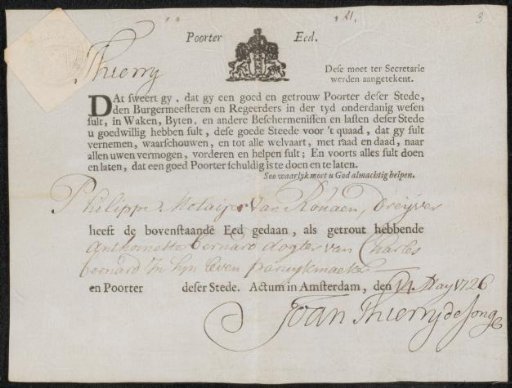 21.
3
Poorter Eed.
Thierry
Dese moet ter Secretarie
werden aangetekent.
DAt sweert gy, dat gy een goed en getrouw Poorter deser Stede,
den Burgermeesteren en Regeerders in der tyd onderdanig wesen
sult, in Waken, Byten, en andere Beschermenissen en lasten deser Stede
u goedwillig hebben sult, dese goede Steede voor 't quaad, dat gy sult
vernemen, waarschouwen, en tot alle welvaart, met raad en daad, naar
allen uwen vermogen, vorderen en helpen sult; En voorts alles sult doen
en laten, dat een goed Poorter schuldig is te doen en te laten.
Soo waarlyk moet u God almachtig helpen.
Philippe van
heeft de bovenstaande Eed gedaan, als getrout hebbende
Bernard dogter van Charles
bernard in syn leven paruykmaeker
en Poorter deser Stede. Actum in Amsterdam, den 14 May 1726
Joan Thierry de Jonge